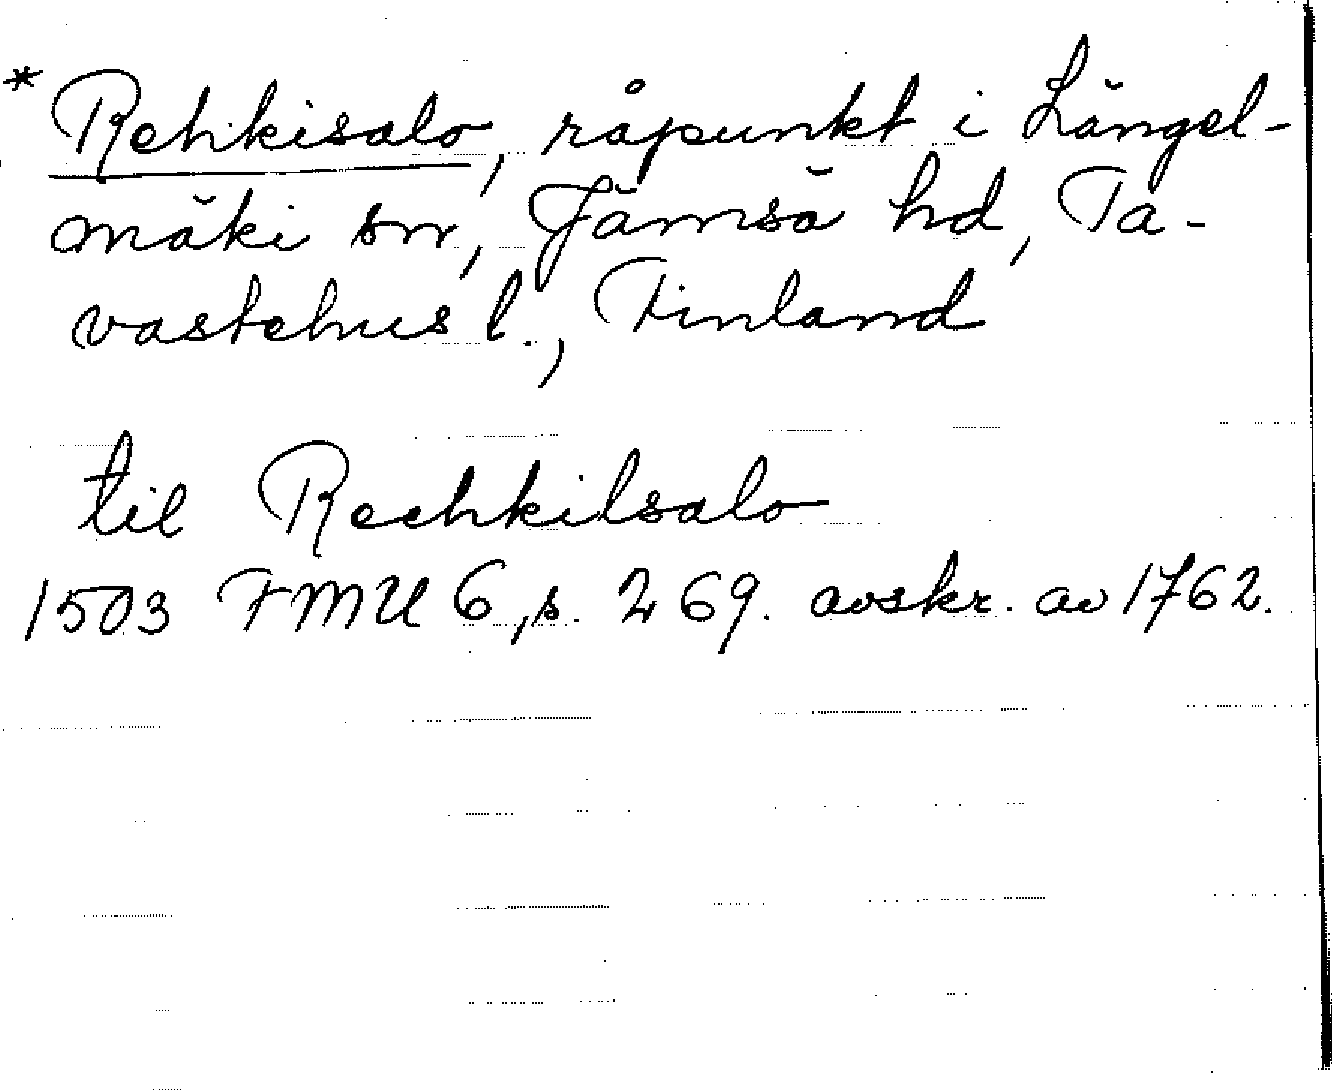 * Rehkisalo, råpunkt i Längel-
mäki sn, Jämsä hd, Ta-
vastehus l., Finland
til Rechkilsalo
1503 FMU 6, s. 269. avskr. av 1762.